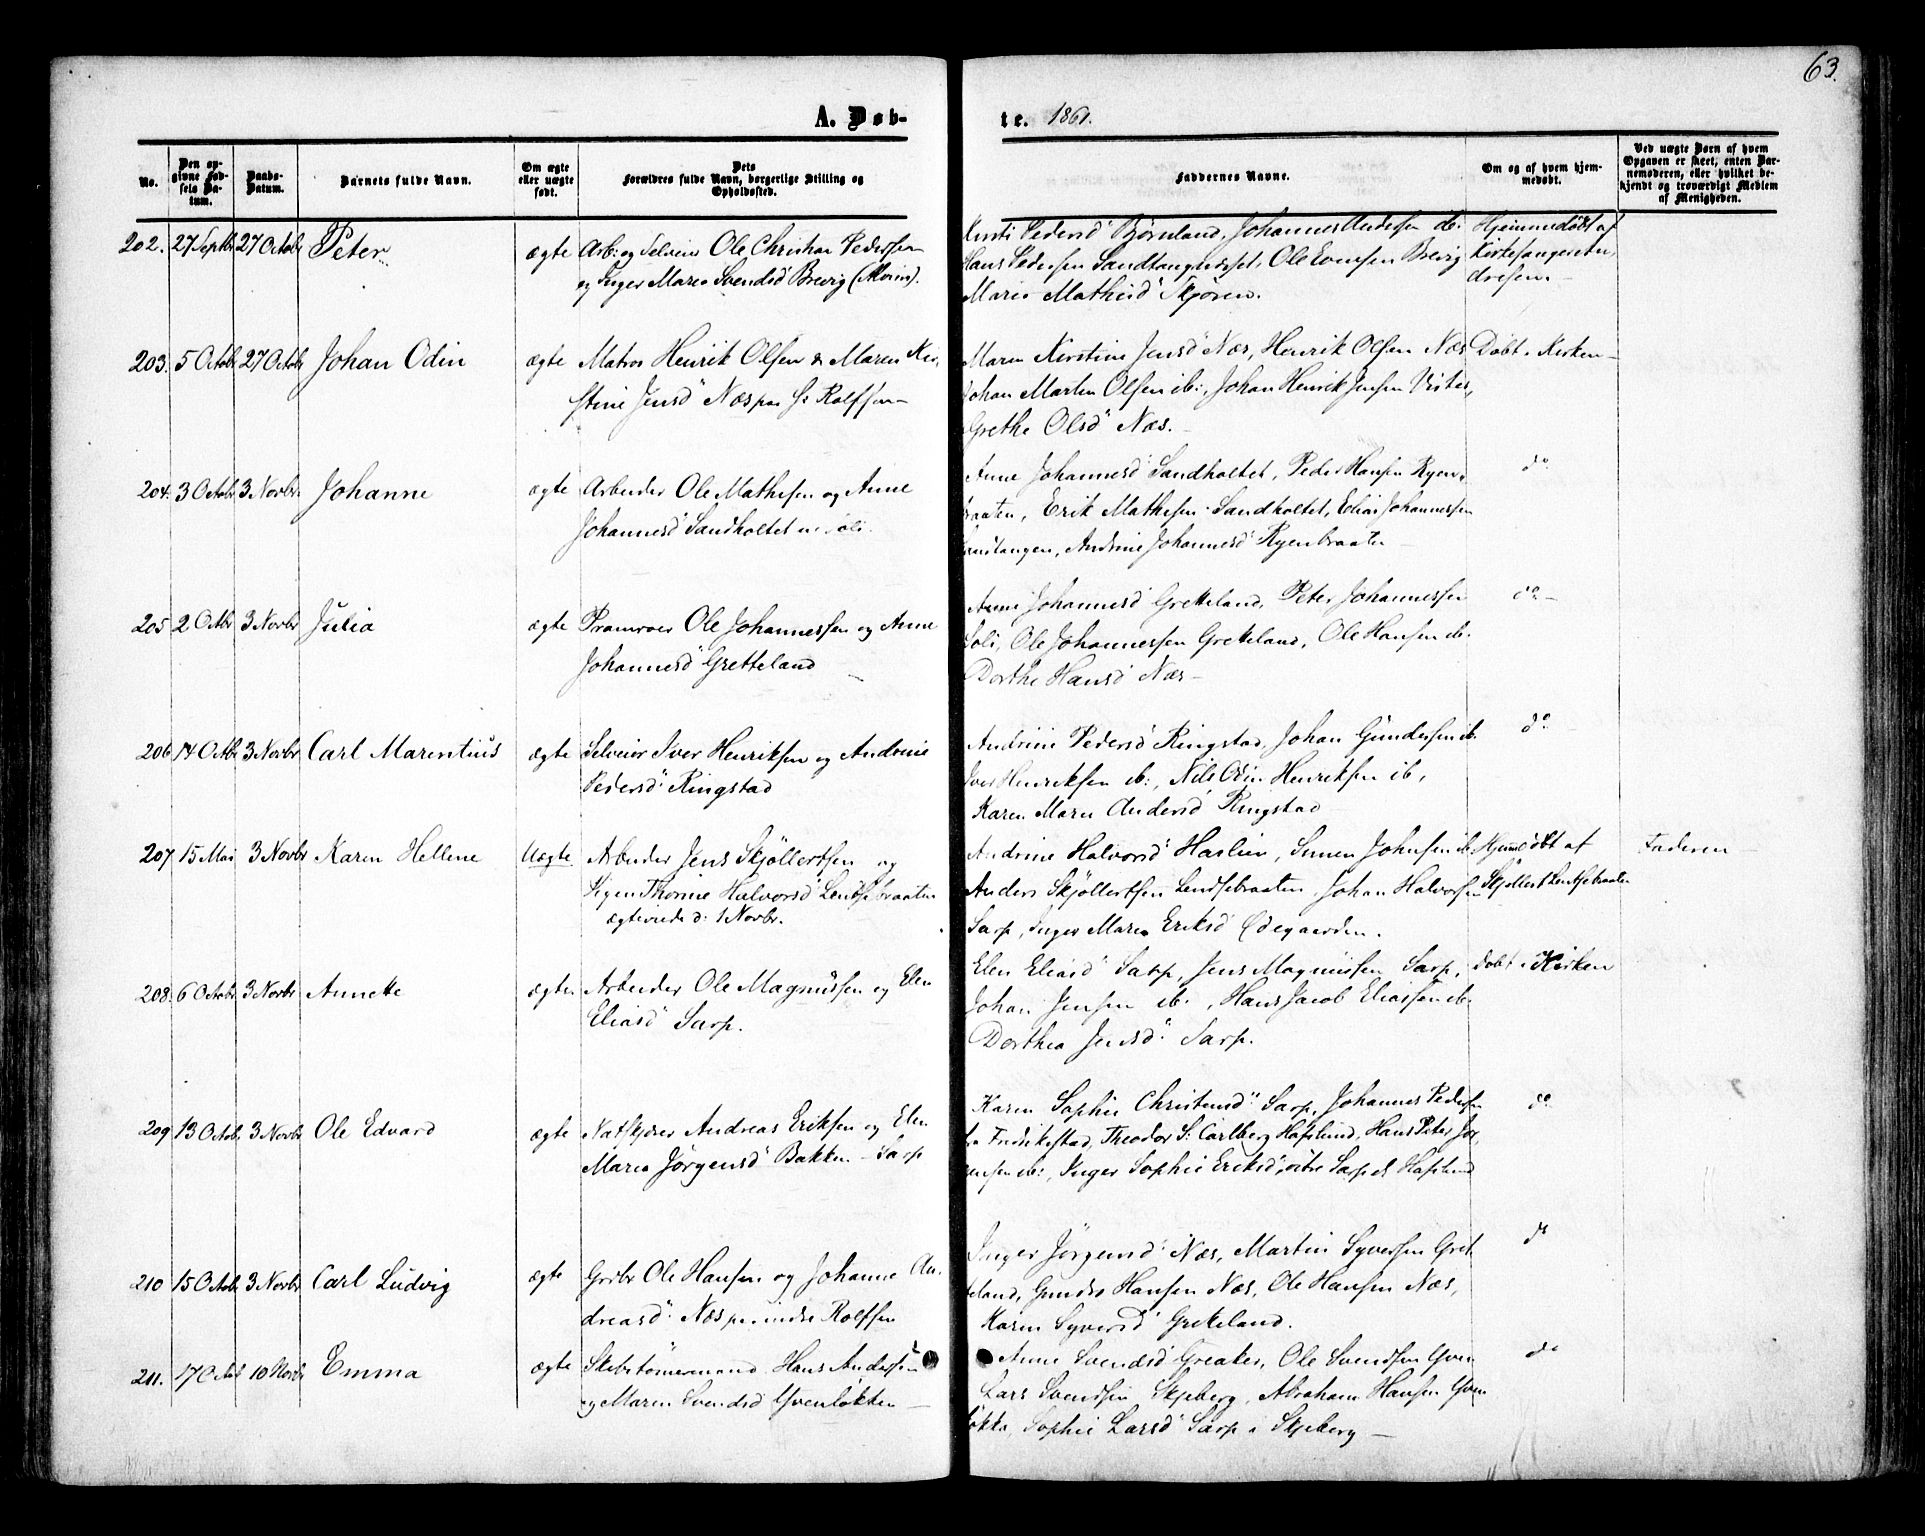 63.
A. Døb-
te. 1861.
No.
Den opgivne Fødsels Datum.
Daabs-Datum.
Barnets fulde Navn.
Om ægte eller uægte født.
Dets Forældres fulde Navn, borgerlige Stilling og Opholdssted.
Faddernes Navne.
Om og af hvem hjemmedøbt.
Ved uægte Børn af hvem Opgaven er skeet, enten Barnemoderen, eller hvilket bekjendt og troværdigt Medlem af Menigheden.
202. 27 Septbr 27 Octobr Peter ægte Arb: og Selveier Ole Christian Pedersen
og Inger Marie Svendsd Brevig
Pedersd Bjørnland, Johannes Andersen ib:
Hans Pedersen Ole Evensen Brevig
Maria Mathisd Skjøren.
Hjemmedøbt af
Kirkesanger
203. 5 Octobr 27 Octobr Johan Odin ægte Matros Henrik Olsen & Maren Kir-
stine Jensd Næs Rolfsøen
Maren Kirstine Jensd Næs, Henrik Olsen Næs
Johan Martin Olsen ib:, Johan Henrik Jensen
Grethe Olsd Næs.
Døbt i Kirken
204. 3 Octobr 3 Novbr. Johanne ægte Arbeider Ole Mathisen og Anne
Johannesd Sandholtet u: Soli.
Anne Johannesd Sandholtet, Peder Hansen Ryen-
braaten, Erik Mathisen Sandholtet, Elias Johannessen
Andrine Johannesd Ryenbraaten
do
205 2 Octbr 3 Novbr Julia ægte Pramroer Ole Johannessen og Anne
Johannesd Gretteland
Anne Johannesd Gretteland, Peter Johannessen
Soli, Ole Johannessen Gretteland, Ole Hansen ib.
Dorthe Hansd Næs
do
206 14 Octbr 3 Novbr Carl Marentius ægte Selveier Iver Henriksen og Andrine
Pedersd Ringstad
Andrine Pedersd Ringstad, Johan Gundersen ib.
Iver Henriksen ib:, Nils Odin Henriksen ib,
Karen Marie Andersd Ringstad
do
207 15 Mai 3 Novbr Karen Hellene Uægte Arbeider Jens Skjøllertsen og
Thorine Halvorsd Lendsebraaten
ægteviede d: 1 Novbr.
Andrine Halvorsd Haslien, Simen Johnsen ib:
Anders Skjøllertsen Lendsebraaten, Johan Halvorsen
Sarp, Inger Maria Eriksd Ødegaarden.
Hjemdøbt af
Skjøllert Lendsebraaten
Faderen
208. 6 Octobr 3 Novbr Annette ægte Arbeider Ole Magnussen og Elen
Eliasd Sarp.
Elen Eliasd Sarp, Jens Magnussen Sarp,
Johan Jensen ib:, Hans Jacob Eliassen ib
Dorthea Jensd Sarp.
Døbt i Kirken
209 13 Octob. 3 Novbr Ole Edvard ægte Andreas Eriksen og Elen
Maria Jørgensd Bakken - Sarp
Karen Sophie Sarp, Johannes Pedersen
Fredrikstad, Theodor S: Carlberg Hafslund, Hans Peter
ib:, Inger Sophie Eriksd, Sarp Hafslund
do
210 15 Octobr 3 Novbr Carl Ludvig ægte Grdbr Ole Hansen og Johanne An-
dreasd Næs Rolfsøen
Inger Jørgensd Næs, Martin Syversen Gret-
teland, Gunder Hansen Næs, Ole Hansen Næs,
Karen Syversd Gretteland.
do
211. 17 Octobr 10 Novbr Emma ægte Skibstømermand Hans Andersen
og Maren Svendsd Yvenløkken
Anne Svendsd Greaker, Ole Svendsen Yven
Lars Svendsen Skjeberg, Abraham Hansen Yven
løkka, Sophie Larsd Sarp i Skjeberg
do